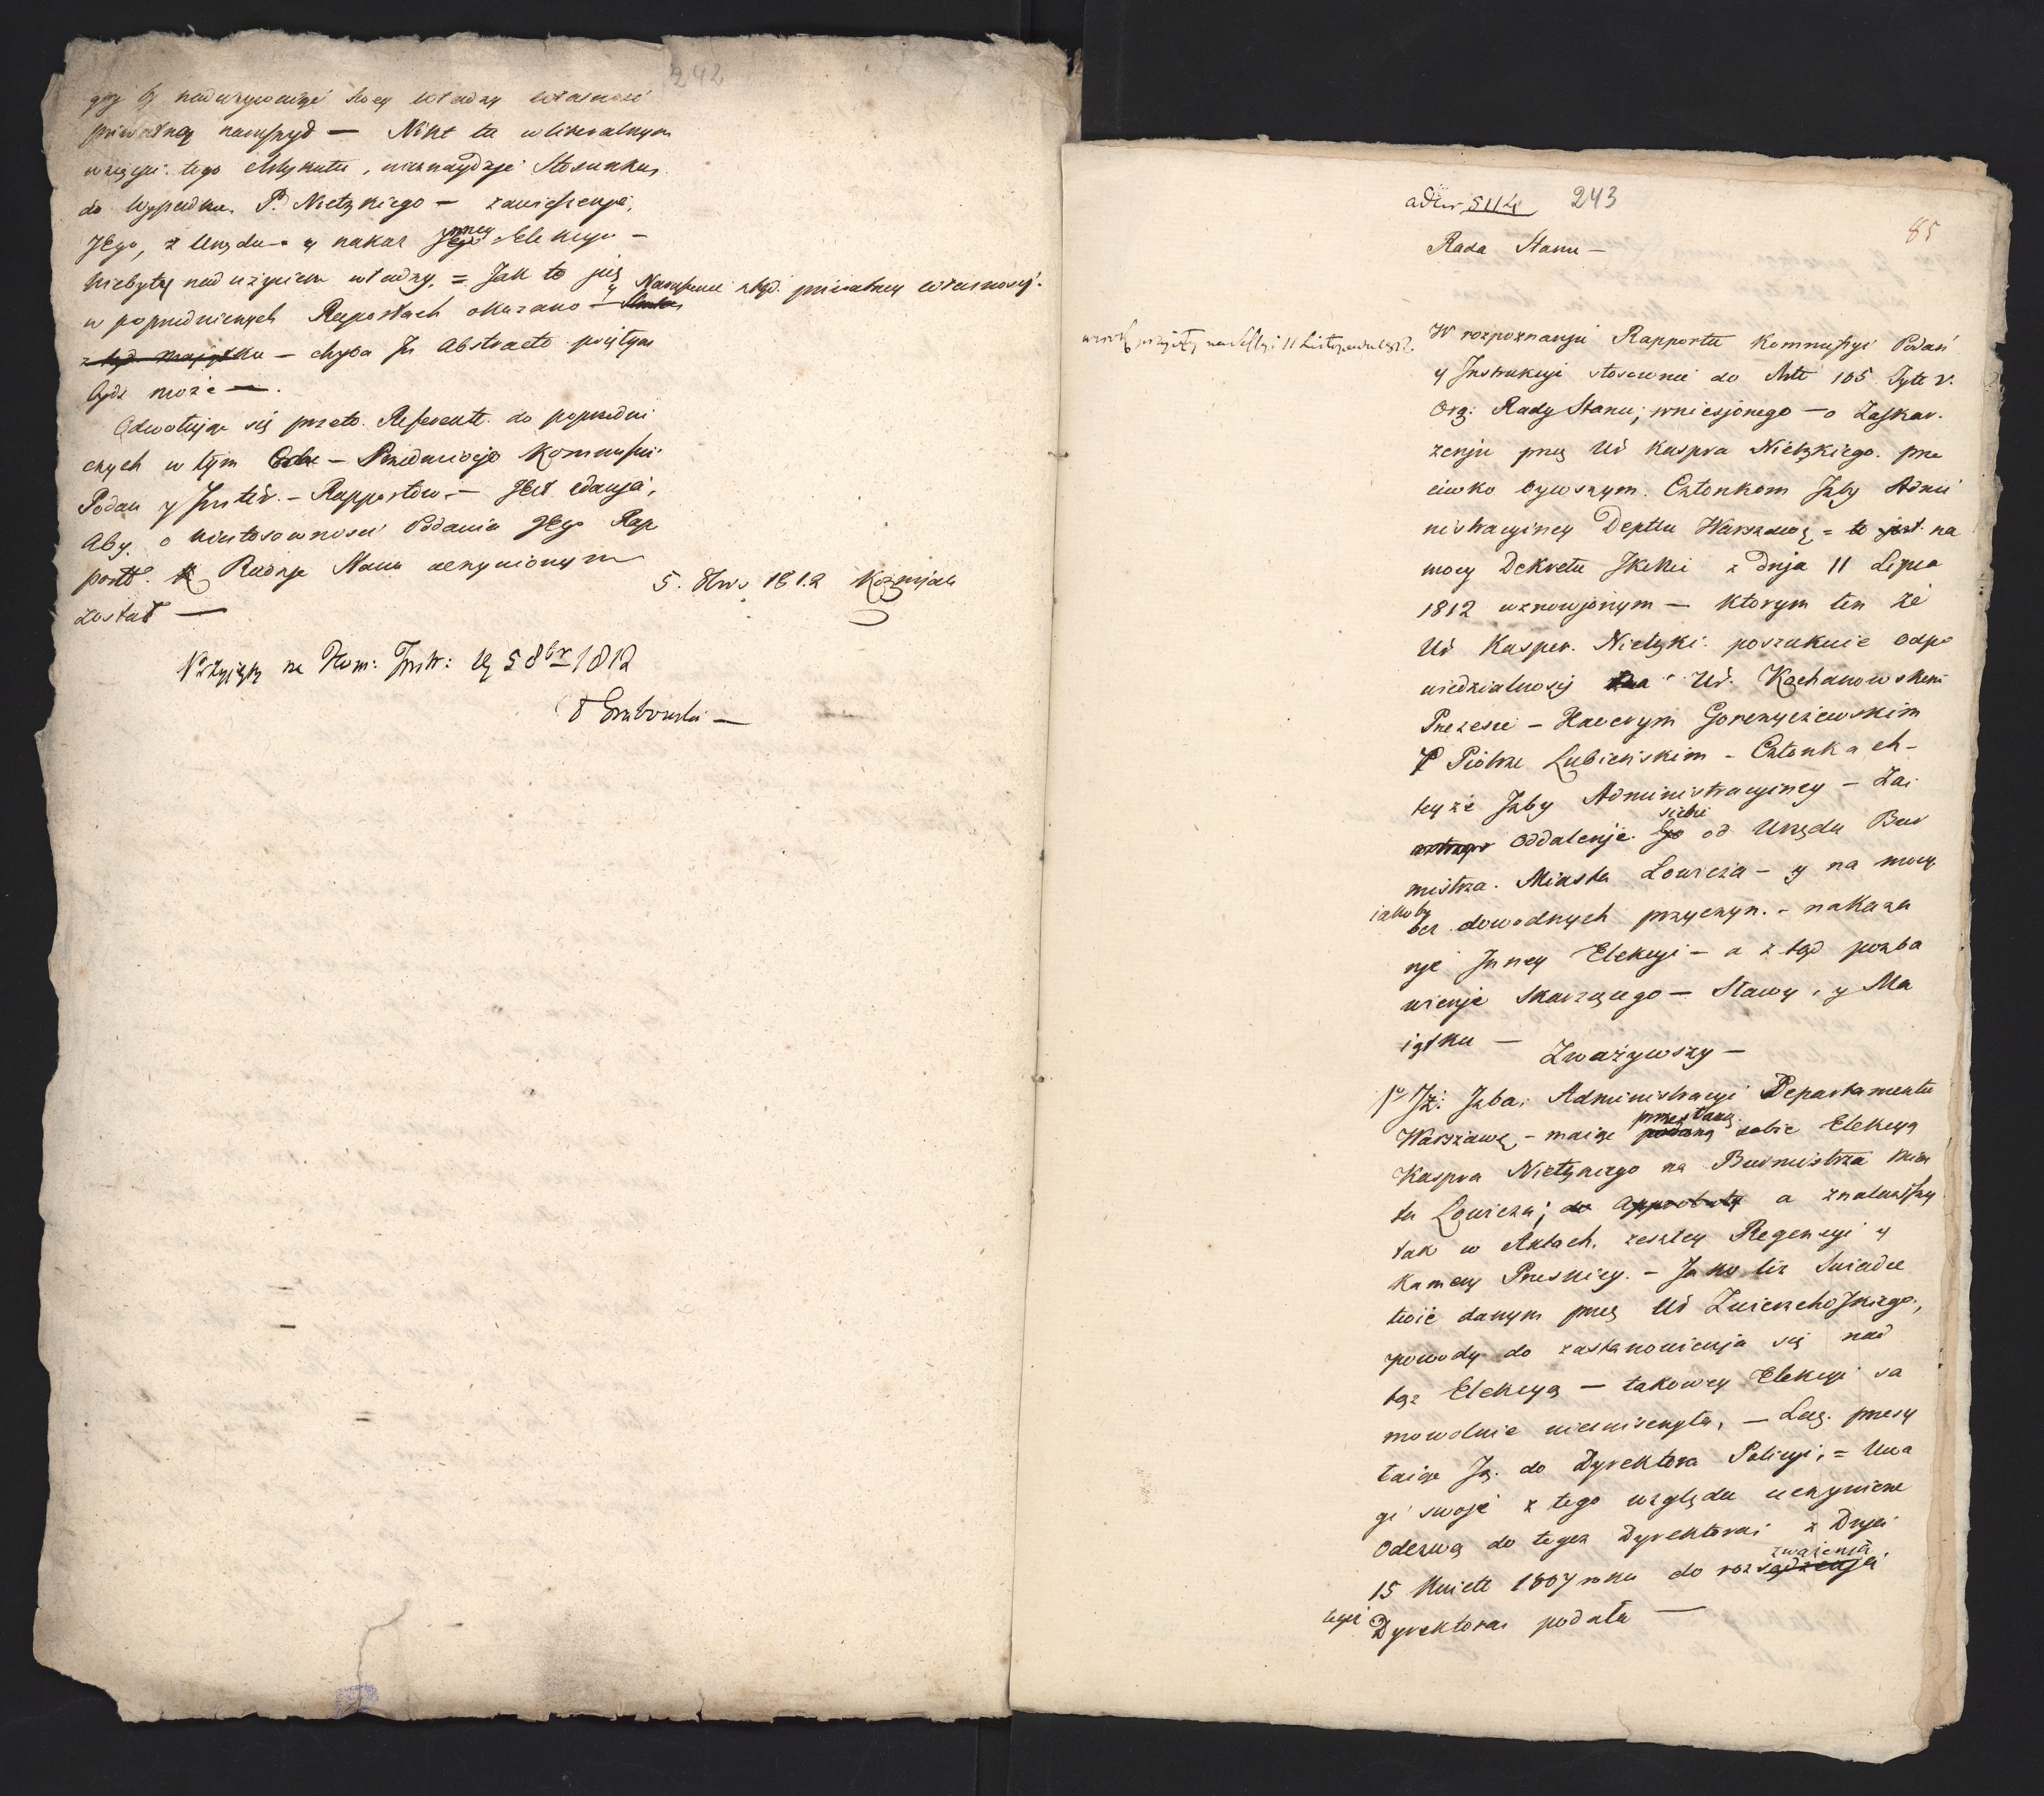 242
gdy by nadużywając swey władzy własność
prywatną naruszył — Nikt tu w literalnym
wzięciu tego Artykułu, nieznaydzje Stosunku
do wypadku P. Nietzkiego — zawieszenje
Jego, z Urzędu — y nakaz inney Elekcyi —
niebyły nadużyciem władzy, = Jak to już
w poprzedniczych Raportach okazano — y Naruszenie ztąd. prywatney własnosci.
z tąd majątku — chyba In Abstracto wziętym
bydz może —.
Odwołując się przeto Referent do poprzedni
czych w tym — Kommissyi
Podań y Instr. — Rapportów — Jest zdanja,
Aby o niestosownosci Podania Jego Rap
port Radzje Stanu uczynionym
został —
5. 1812 Kozmjan
Przyjęty na Kom: Instr: d. 5 8br 1812
Grabowski —
ad Nr 5114 243
85
Rada Stanu —
wniosek przyięty na Sessyi 11 Listopada 1812.
W rozpoznanju Rapportu Kommissyi Podań
y Instrukcyi stosownie do Artt 105 Tytt V.
Org: Rady Stanu, wniesjonego — o Zaskar.
zenju przez Ur Kaspra Nietzkiego. prze
ciwko bywszym. Członkom Jzby Admi
nistracyiney Depttu Warszaws = to jest. na
mocy Dekretu JKMci z Dnja 11 Lipca
1812 wznowjonym — ktorym ten że
Ur Kasper. Nietzki. poszukuie odpo
wiedzialnosci na Ur. Kochanowskim
Prezesie — Xawerym Gorczyczewskim
y Piotrze Łubieńskim — Członkach —
teyże Jzby Administracyiney — Za
oddalenje siebie od Urzędu Bur
mistrza. Miasta Łowicza — y na mocy
iakoby bez dowodnych przyczyn. — nakaza
nje Inney Elekcyi — a z tąd pozba
wienje Skarzącego — Sławy, y Ma
iątku —
Zważywszy —
1o Jż: Jzba, Administracyi Departamentu
Warszaws, — maiąc przesłaną sobie Elekcyą
Kaspra Nietzkiego na Burmistrza Mias
ta Łowicza; do approbaty a znalazłszy
tak w Aktach. zeszłey Regencyi y
Kamery Pruskiey. — Jako też Swiadec
twie danym przez Ur Zwierzchoskiego,
powody do zastanowienja się nad
tąż Elekcyą — takowey Elekcyi sa
mowolnie nieunisczyła, — Lecz. przesy
łaiąc Ją. do Dyrektora Policyi, = Uwa
gi swoje z tego względu uczynione
Odezwą do tegoż Dyrektora z Dnja
15 Kwiett 1807 roku do rozważenja
tegoż Dyrektora podała —